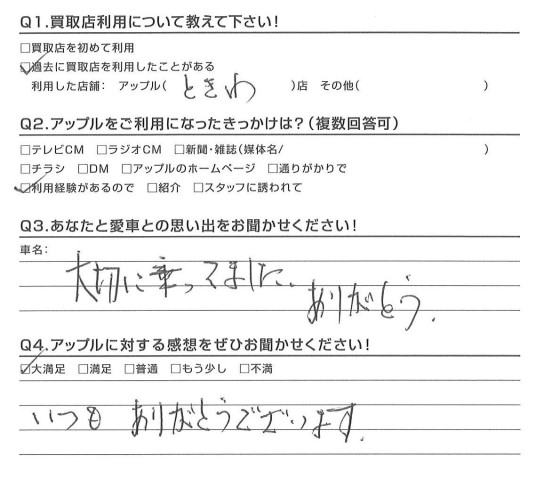 Q1.買取店利用について教えて下さい!
□買取店を初めて利用
☑過去に買取店を利用したことがある
利用した店舗: アップル( ときわ )店 その他( )
Q2.アップルをご利用になったきっかけは?(複数回答可)
□テレビCM □ラジオCM □新聞・雑誌(媒体名/ )
□チラシ □DM □アップルのホームページ □通りがかりで
☑利用経験があるので □紹介 □スタッフに誘われて
Q3.あなたと愛車との思い出をお聞かせください!
車名:
大切に乗ってました。
ありがとう.
Q4.アップルに対する感想をぜひお聞かせください!
☑大満足 □満足 □普通 □もう少し □不満
いつも ありがとうございます.